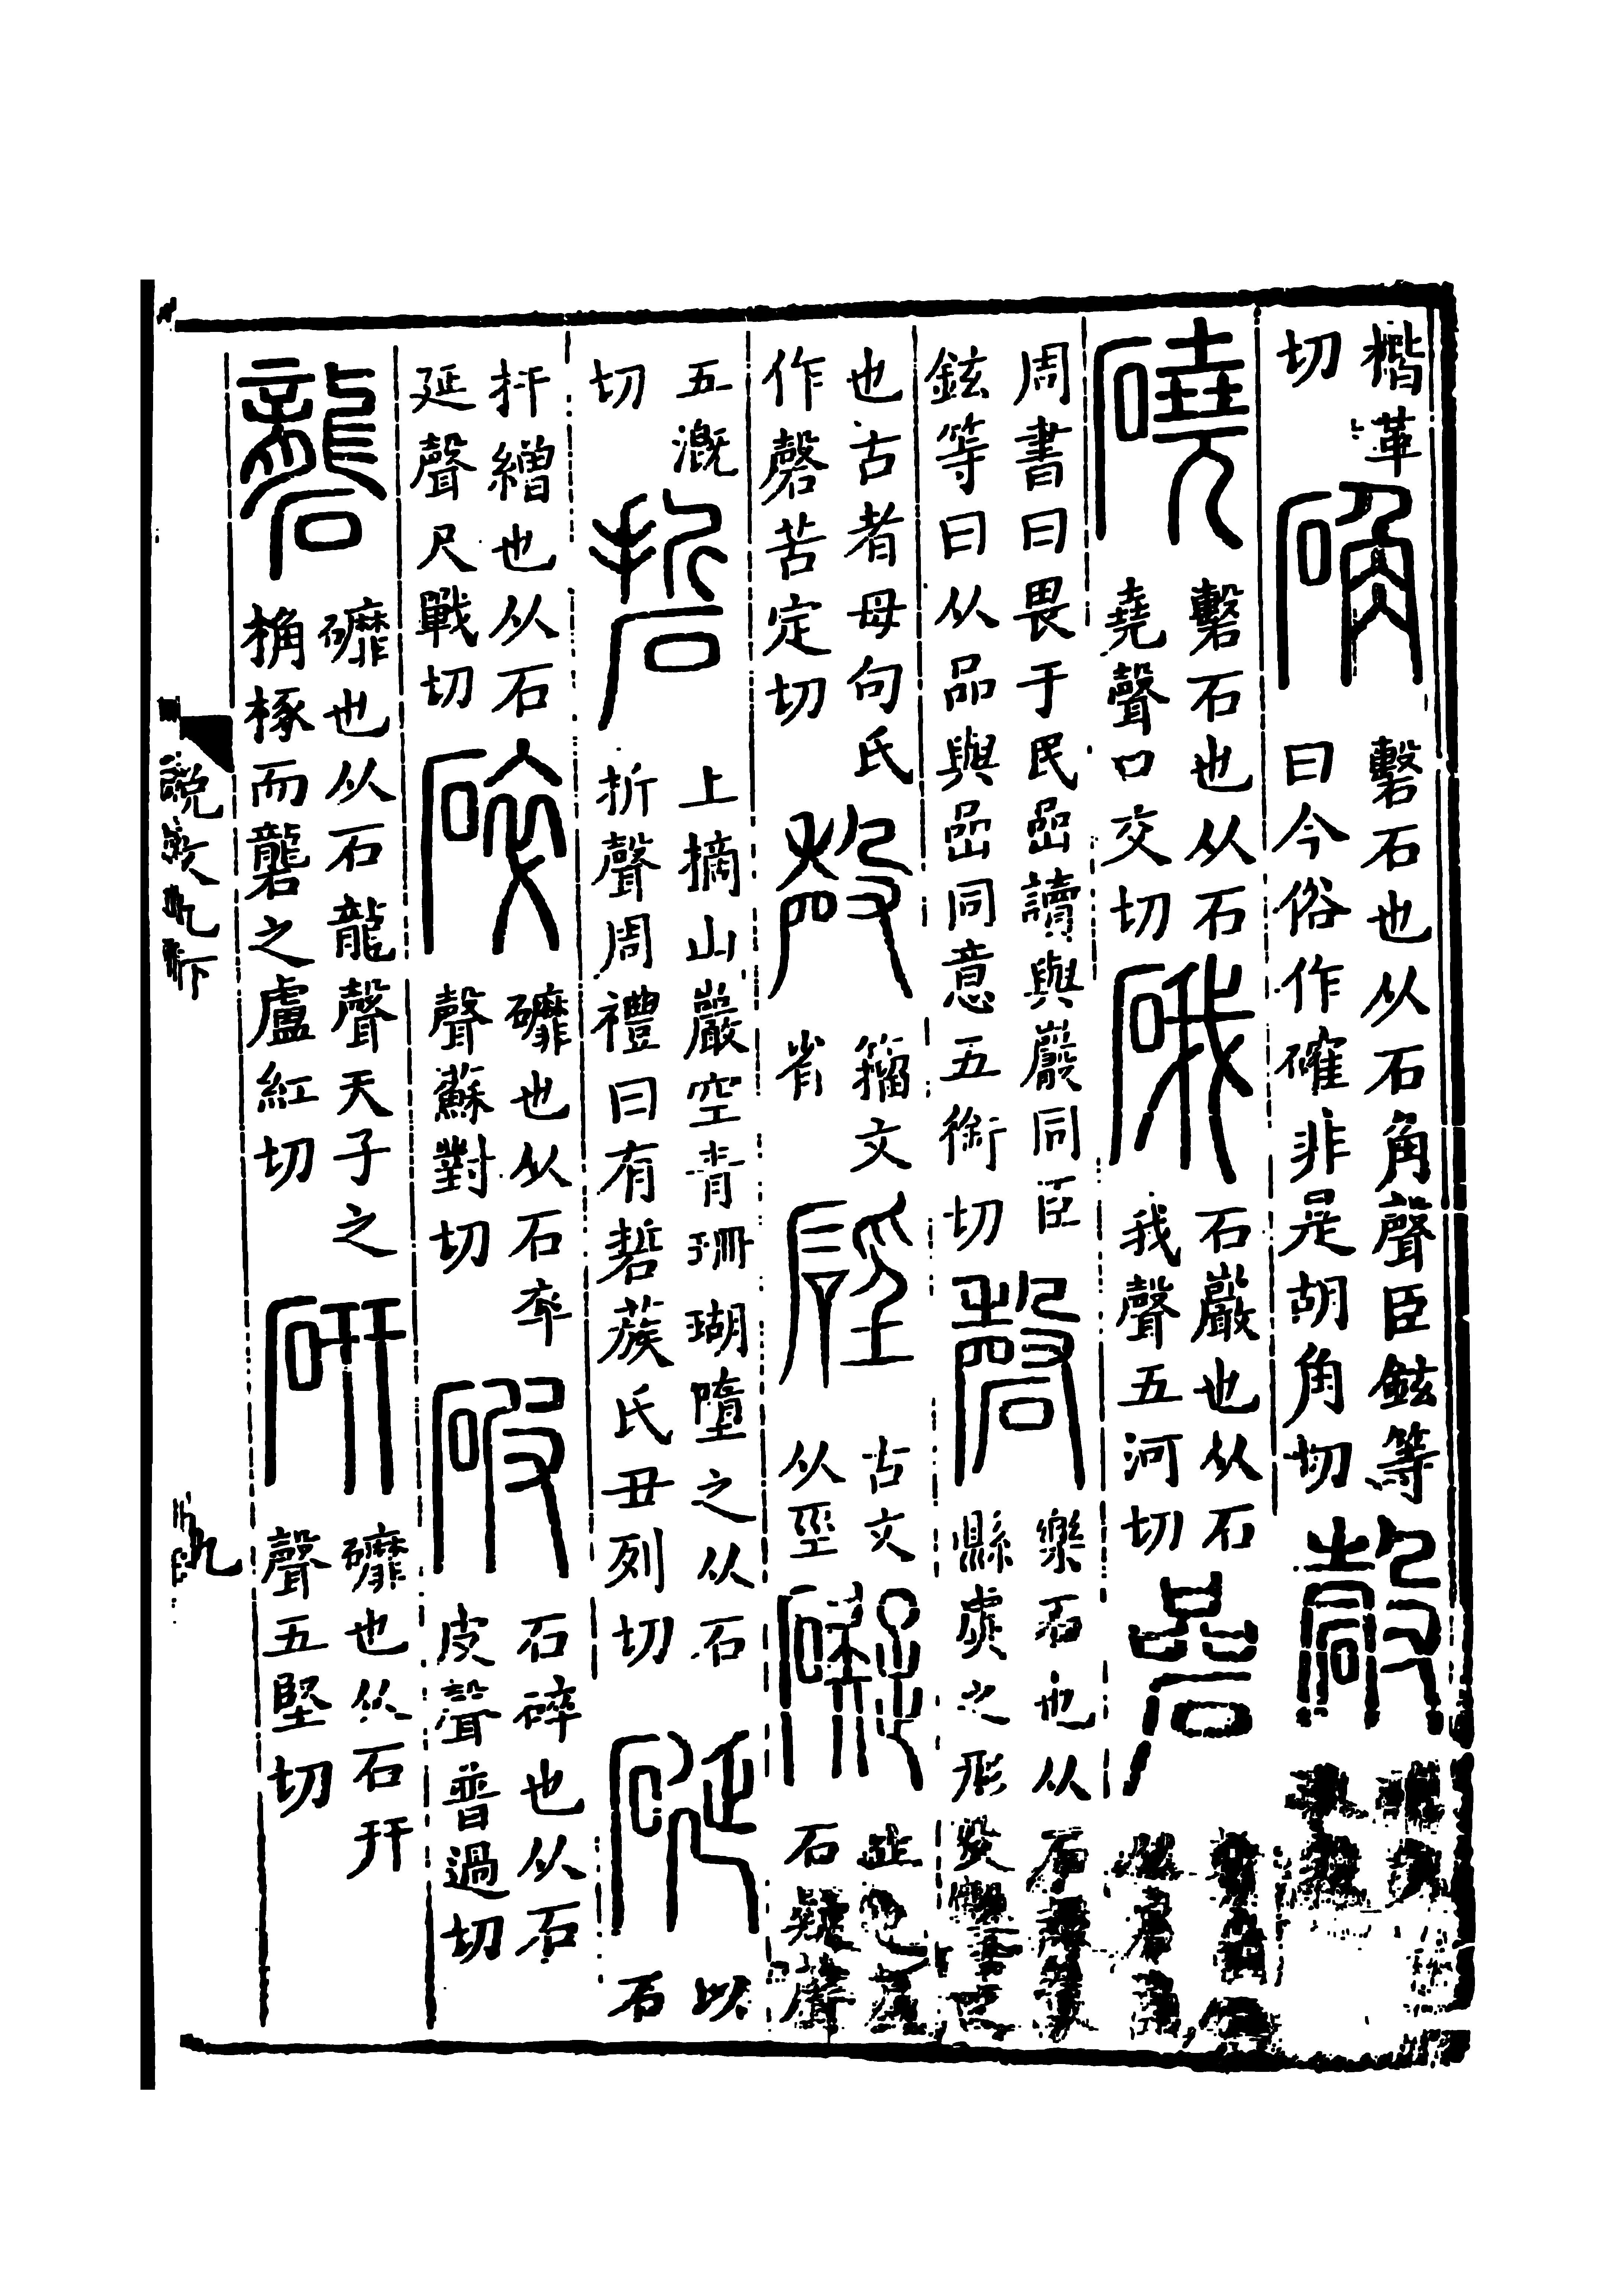 楷革切 确 礊石也从石角聲臣鉉等曰今俗作確非是胡角切
磽 礊石也从石堯聲口交切 硪 石巖也从石我聲五河切 碞
周書曰畏于民嵒讀與巖同臣鉉等曰从品與嵒同意五銜切 磬 樂石也从石縣虡之形殳
也古者母句氏作磬苦定切 殸 籒文省 硜 古文从巠 礙 止也石疑聲
五溉切 硩 上摘山巖空青珊瑚墮之从石折聲周禮曰有硩蔟氏丑列切 硟 以石
扞繒也从石延聲尺戰切 碎 䃺也从石卒聲蘇對切 破 石碎也从石皮聲普過切
礱 䃺也从石龍聲天子之桷椓而礱之盧紅切 研 䃺也从石幵聲五堅切
說文九下 九